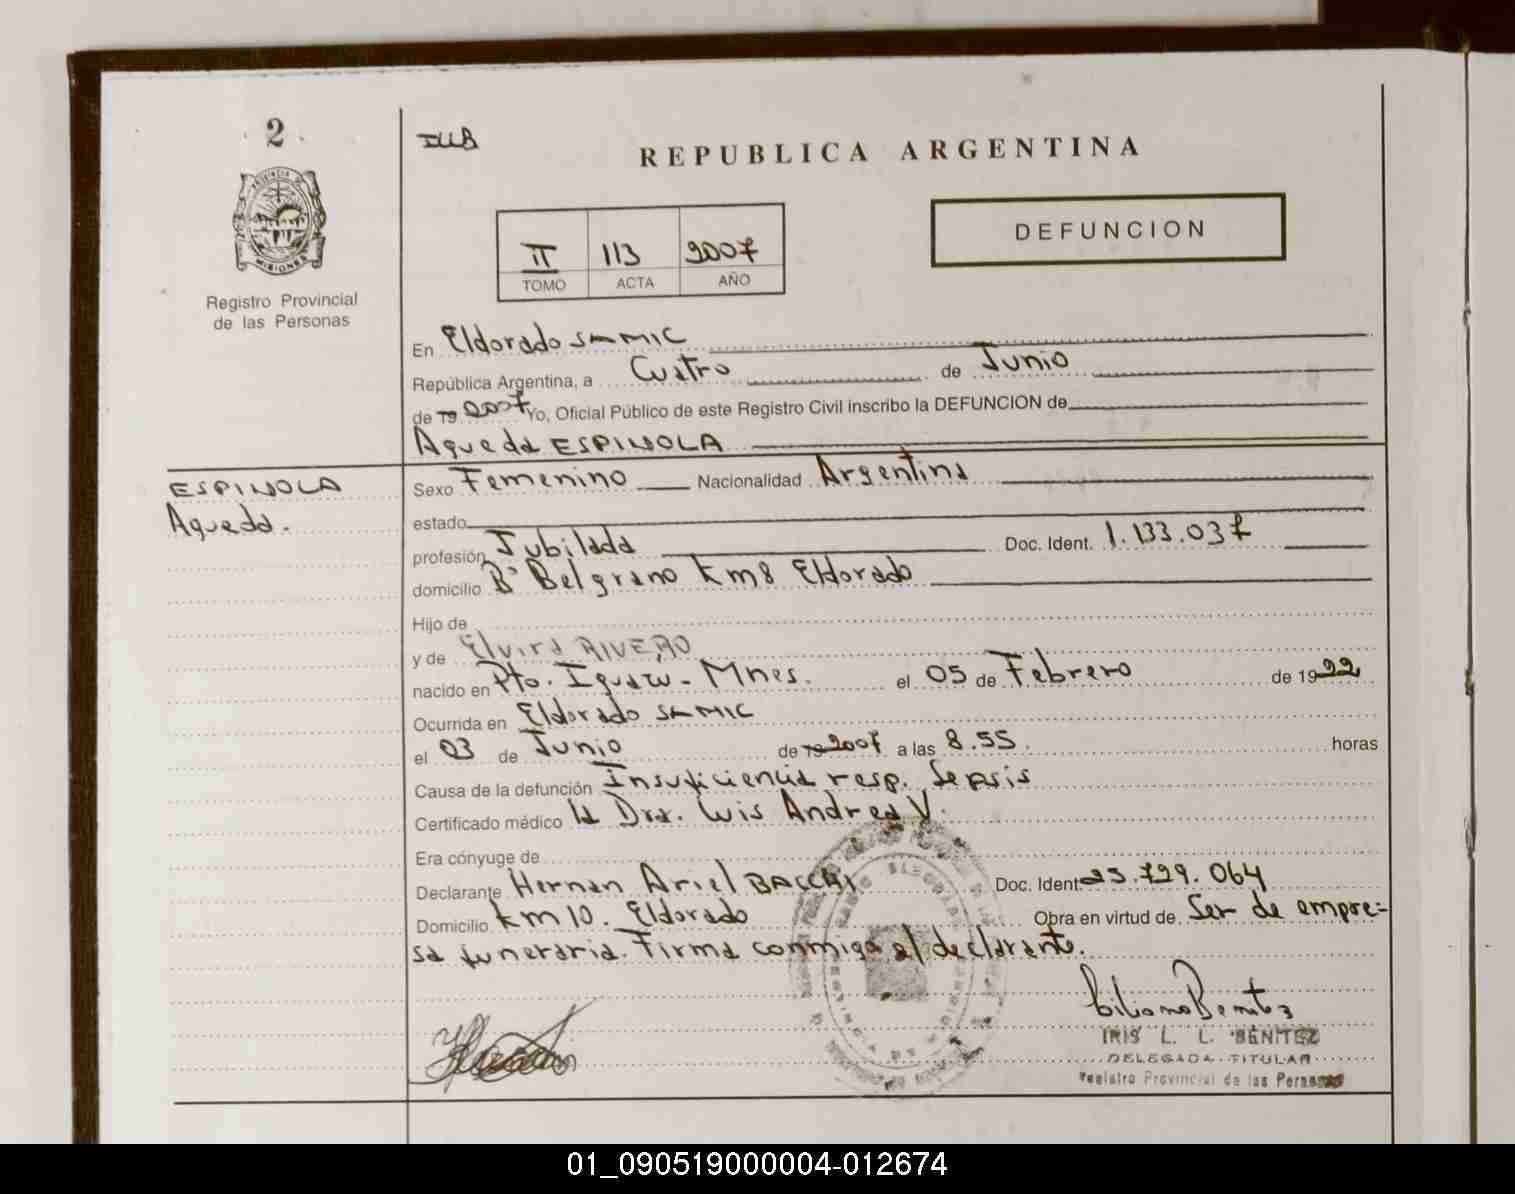 2
PROVINCIA DE
MISIONES
Registro Provincial
de las Personas
REPUBLICA ARGENTINA
DEFUNCION
II 113 2007
TOMO ACTA AÑO
En Eldorado SAMIC
República Argentina, a Cuatro de Junio
de 19 2007 Yo, Oficial Público de este Registro Civil inscribo la DEFUNCION de
Agueda ESPINOLA
ESPINOLA
Agueda.
Sexo Femenino Nacionalidad Argentina
estado
profesión Jubilada Doc. Ident. 1.133.037
domicilio Bº Belgrano Km 8 Eldorado
Hijo de
y de Elvira RIVERO
nacido en Pto. Iguazu - Mnes. el 05 de Febrero de 1922
Ocurrida en Eldorado SAMIC
el 03 de Junio de 19 2007 a las 8.55. horas
Causa de la defunción Insuficiencia resp. Sepsis
Certificado médico la Dra. Luis Andrea V.
Era cónyuge de
Declarante Hernan Ariel BACCHI Doc. Ident 23.729.064
Domicilio Km 10. Eldorado Obra en virtud de Ser de empre=
sa funeraria. Firma conmigo el declarante.
IRIS L. L. BENITEZ
DELEGADA TITULAR
Registro Provincial de las Personas
01_090519000004-012674